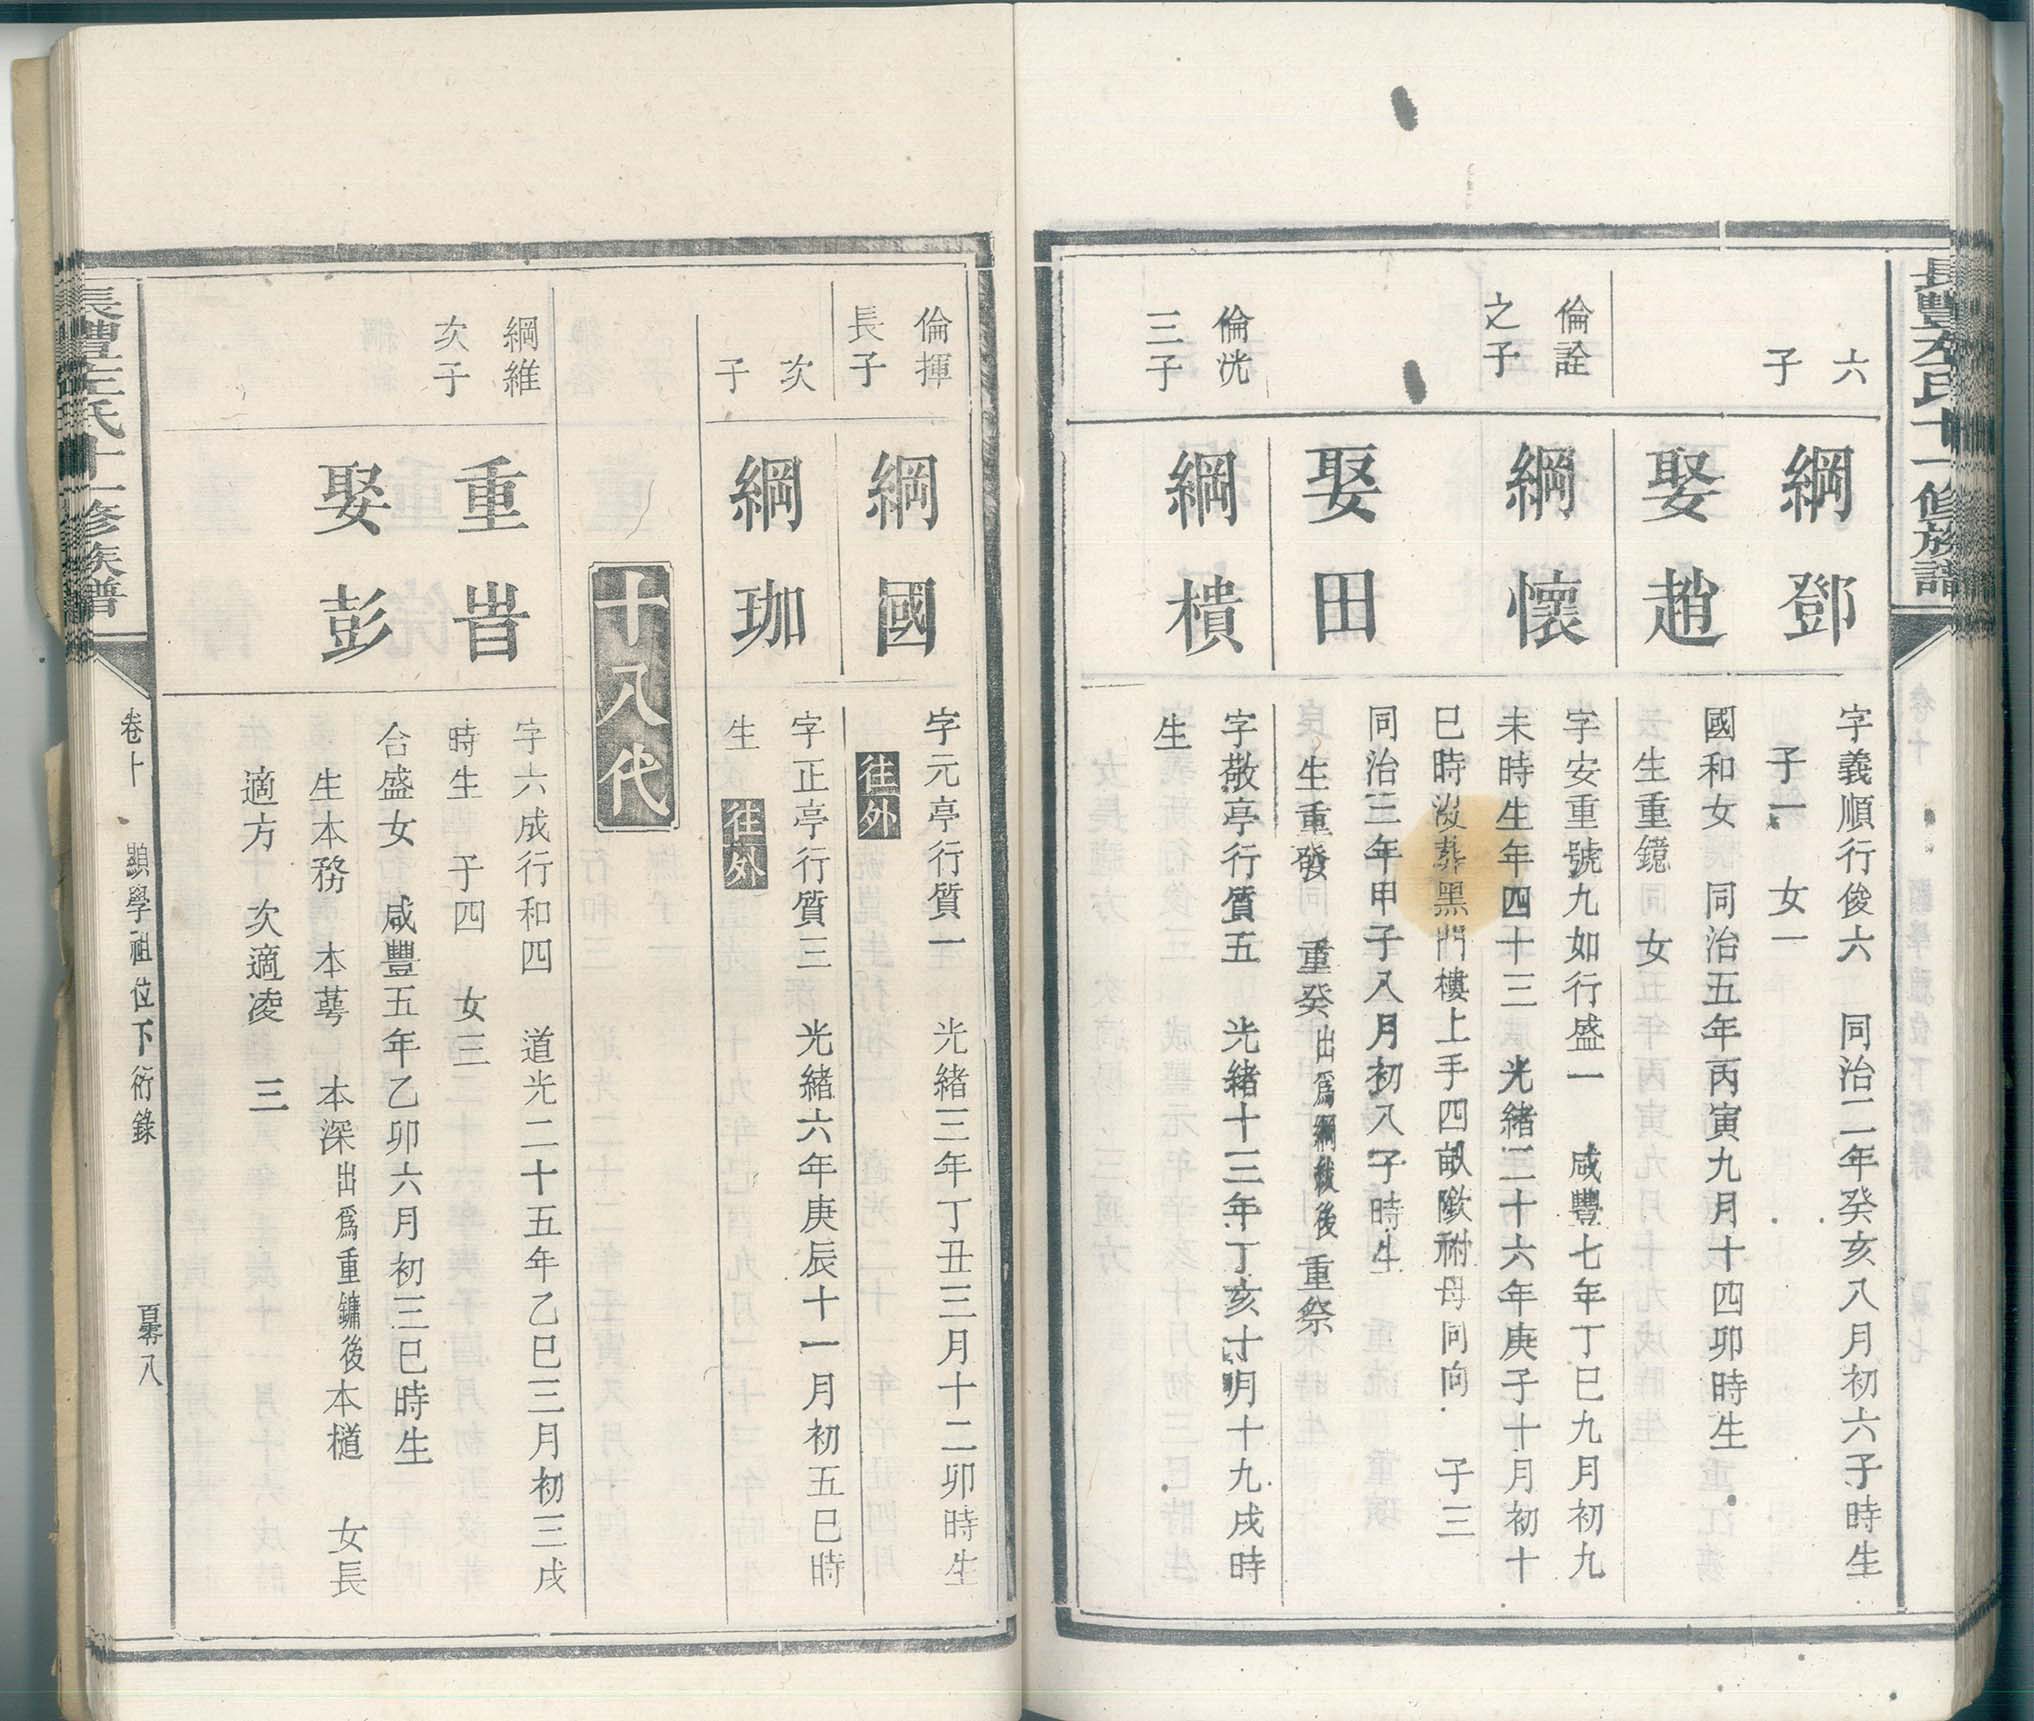 長豐左氏十一修族譜
六
子
綱鄧
字義順行俊六 同治二年癸亥八月初六子時生
子一 女一
娶趙
國和女 同治五年丙寅九月十四卯時生
生重鏡 女
倫詮
之子
綱懷
字安重號九如行盛一 咸豐七年丁巳九月初九
未時生年四十三 光緒二十六年庚子十月初十
巳時沒葬黑門樓上手四畝墩祔母同向 子三
娶田
同治三年甲子八月初八子時生
生重發 重癸出爲綱紱後重祭
倫洸
三子
綱樻
字敬亭行質五 光緒十三年丁亥十月十九戌時
生
倫揮
長子
綱國
字元亭行質一 光緒三年丁丑三月十二卯時生
往外
次
子
綱珈
字正亭行質三 光緒六年庚辰十一月初五巳時
生 往外
十八代
綱維
次子
重旹
字六成行和四 道光二十五年乙巳三月初三戌
時生 子四 女三
娶彭
合盛女 咸豐五年乙卯六月初三巳時生
生本務 本蕚 本深出爲重鏞後本檤 女長
適方 次適凌 三
長豐左氏十一修族譜
卷十 顯學祖位下衍錄 百零八